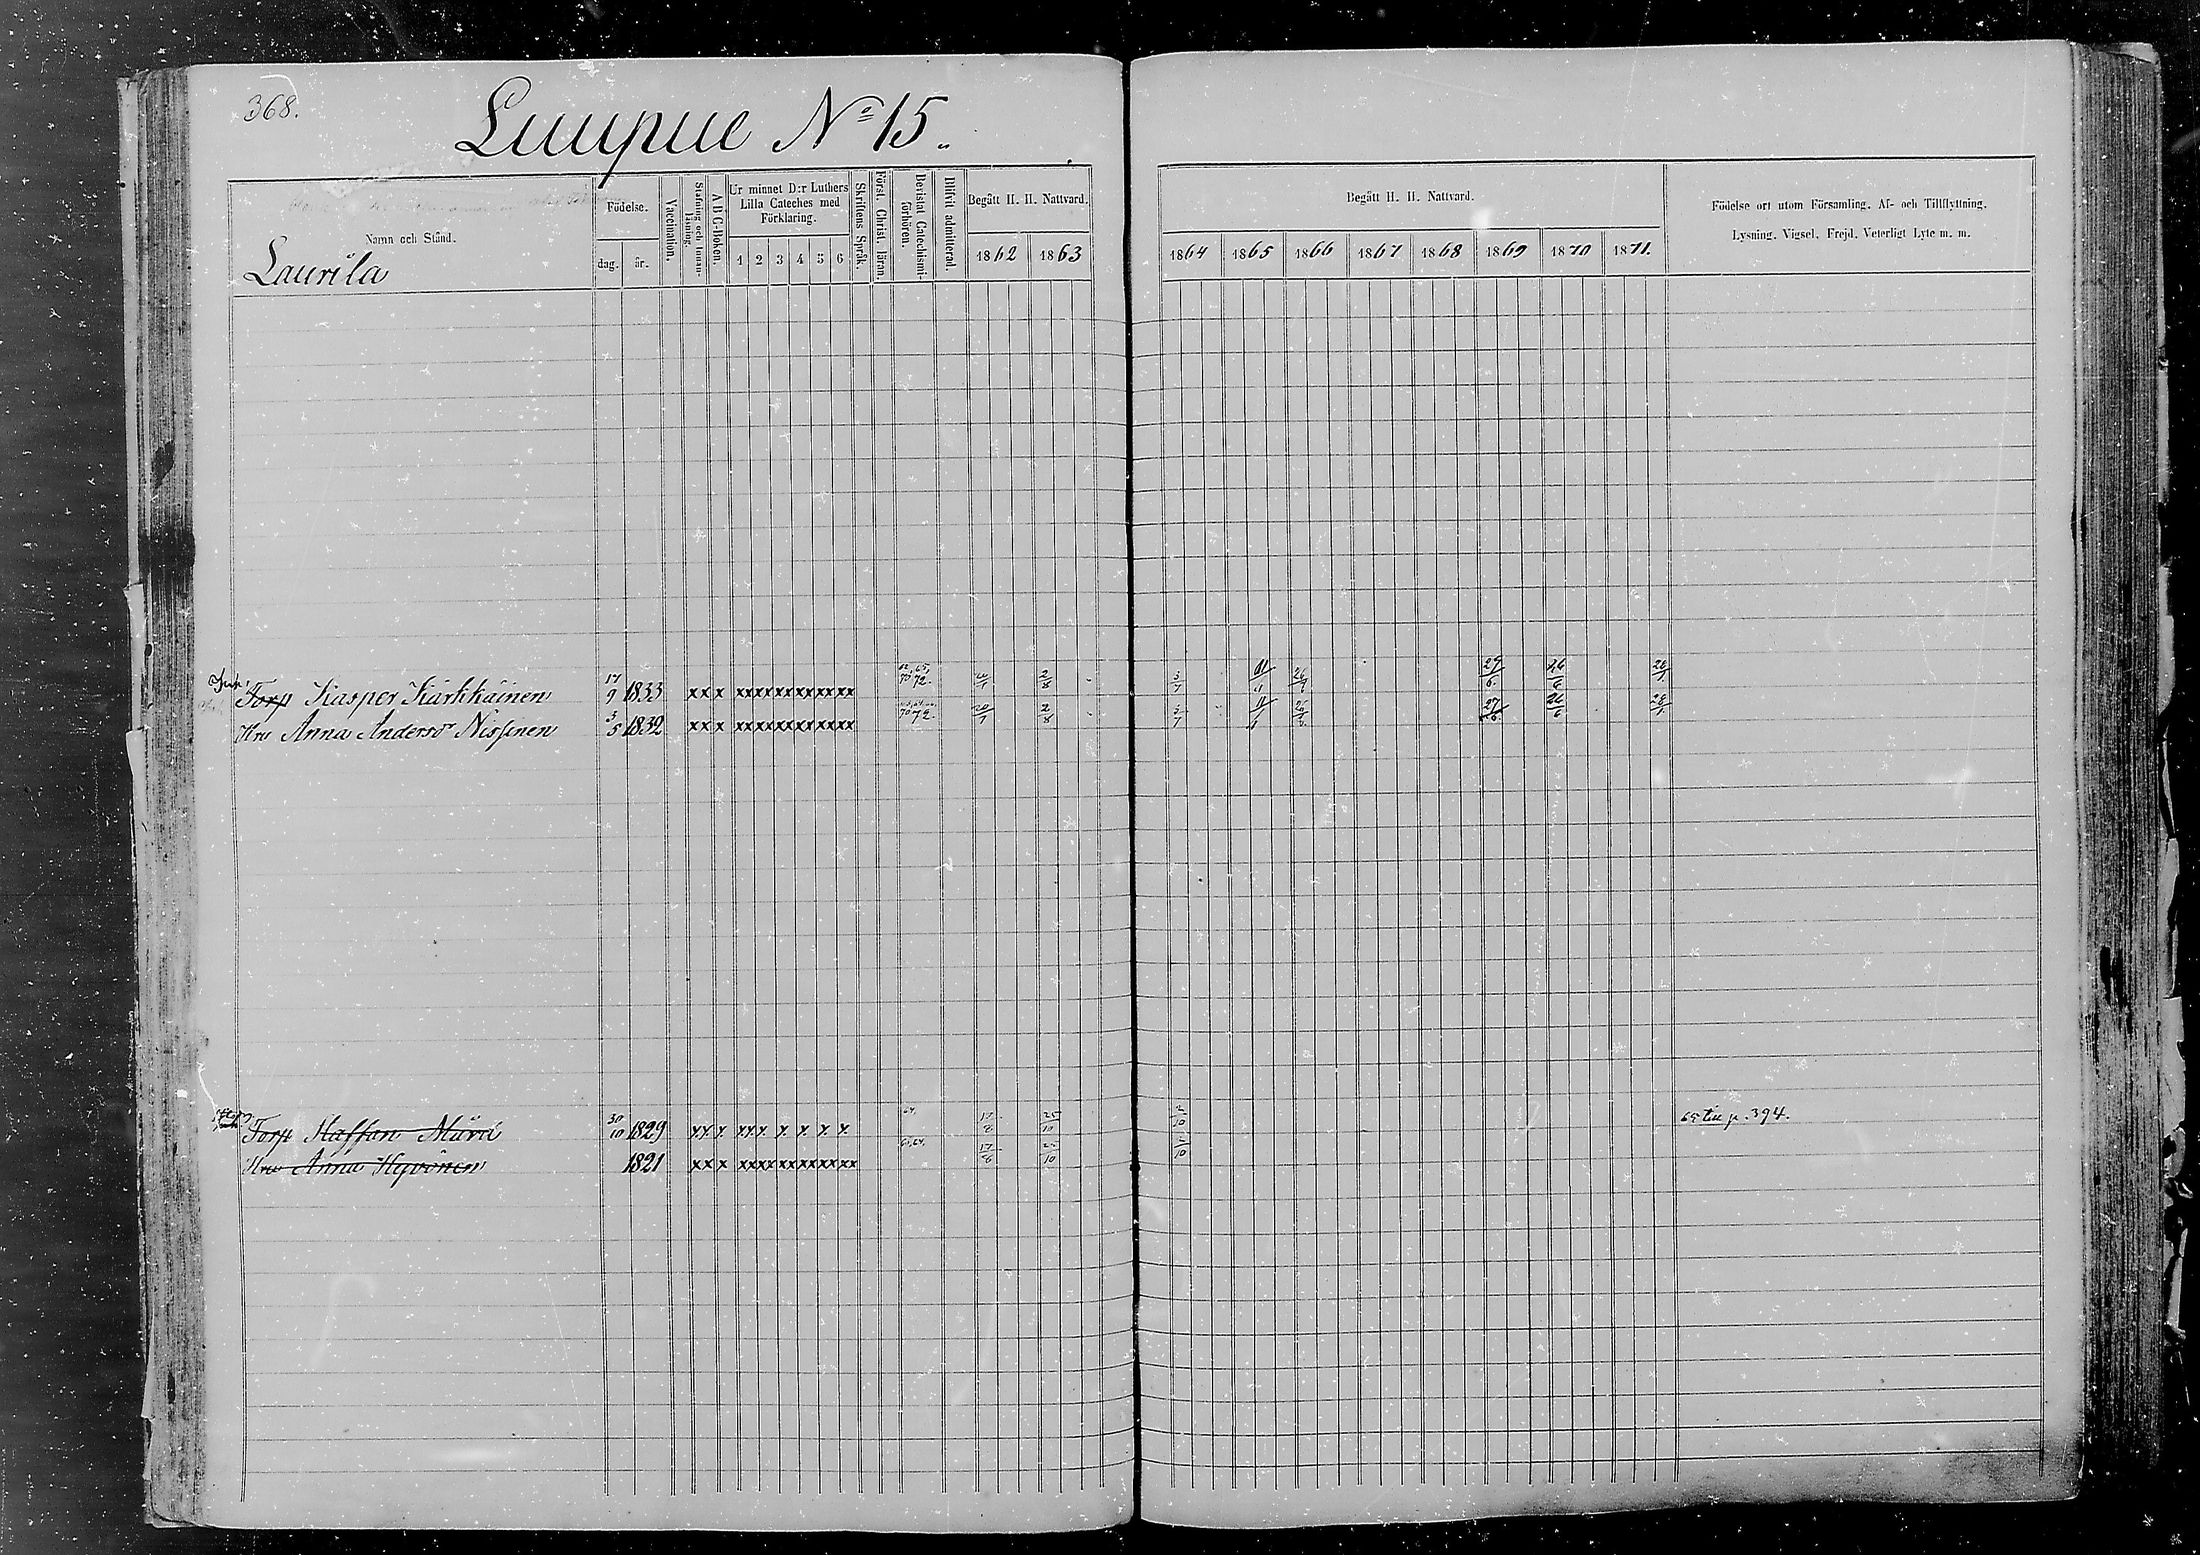 368.
Luupue No 15.
Namn och Stånd.
Laurila
Födelse.
dag. år.
Vaccination.
Stafning och Innanläsning.
A B C-Boken.
Ur minnet D:r Luthers Lilla Cateches med Förklaring.
1 2 3 4 5 6
Skriftens Språk.
Först. Christ. läran.
Bevistat Catechismiförhören.
Blifvit admitterad.
Begått H. H. Nattvard.
1862 1863
Begått H. H. Nattvard.
1864 1865 1866 1867 1868 1869 1870 1871.
Födelse ort utom Församling. Af- och Tillflyttning.
Lysning. Vigsel. Frejd. Veterligt Lyte m. m.
Torp Kasper Kärkkäinen 17/9 1833 x x x xxxx xxxxxxxx 72. 2/8 3/7 11/ 26/ 29/6. 26/6 28/1.
Hru Anna Andersdr Nissinen 3/5 1832 x x x xxxx xxxxxxxx 70 72 20/1 2/8 3/7 11/ 26/ 27/6 26/6 28/1.
Torp Staffan Mürä 30/10 1829 x x x x x x x x x x 64. 17/8 25/10 2/10 65 till p. 394.
Hru Anna Hyvönen 1821 x x x xxxx xxxxxxxx 63,64. 17/8 25/10 2/10